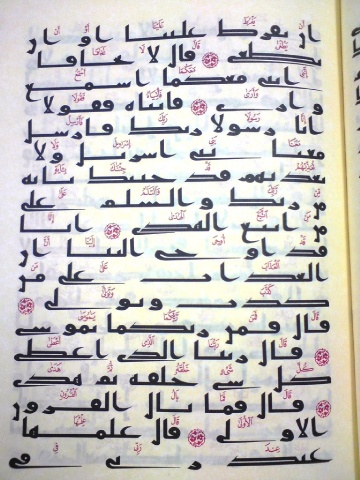 ان يفرط علينا او ان
يطغى قال لا تخافا
اننى معكما اسمع
و ارى فاتياه فقولا
انا رسولا ربك فارسل
معنا بنى اسريل ولا
تعذبهم قد جئنك باية
من ربك و السلم على
من اتبع الهدى انا
قد اوحى الينا ان
العذاب على من
كذب و تولى
قال فمن ربكما يموسى
قال ربنا الذى اعطى
كل شى خلقه ثم هدى
قال فما بال القرون
الاولى قال علمها
عند ربى فى